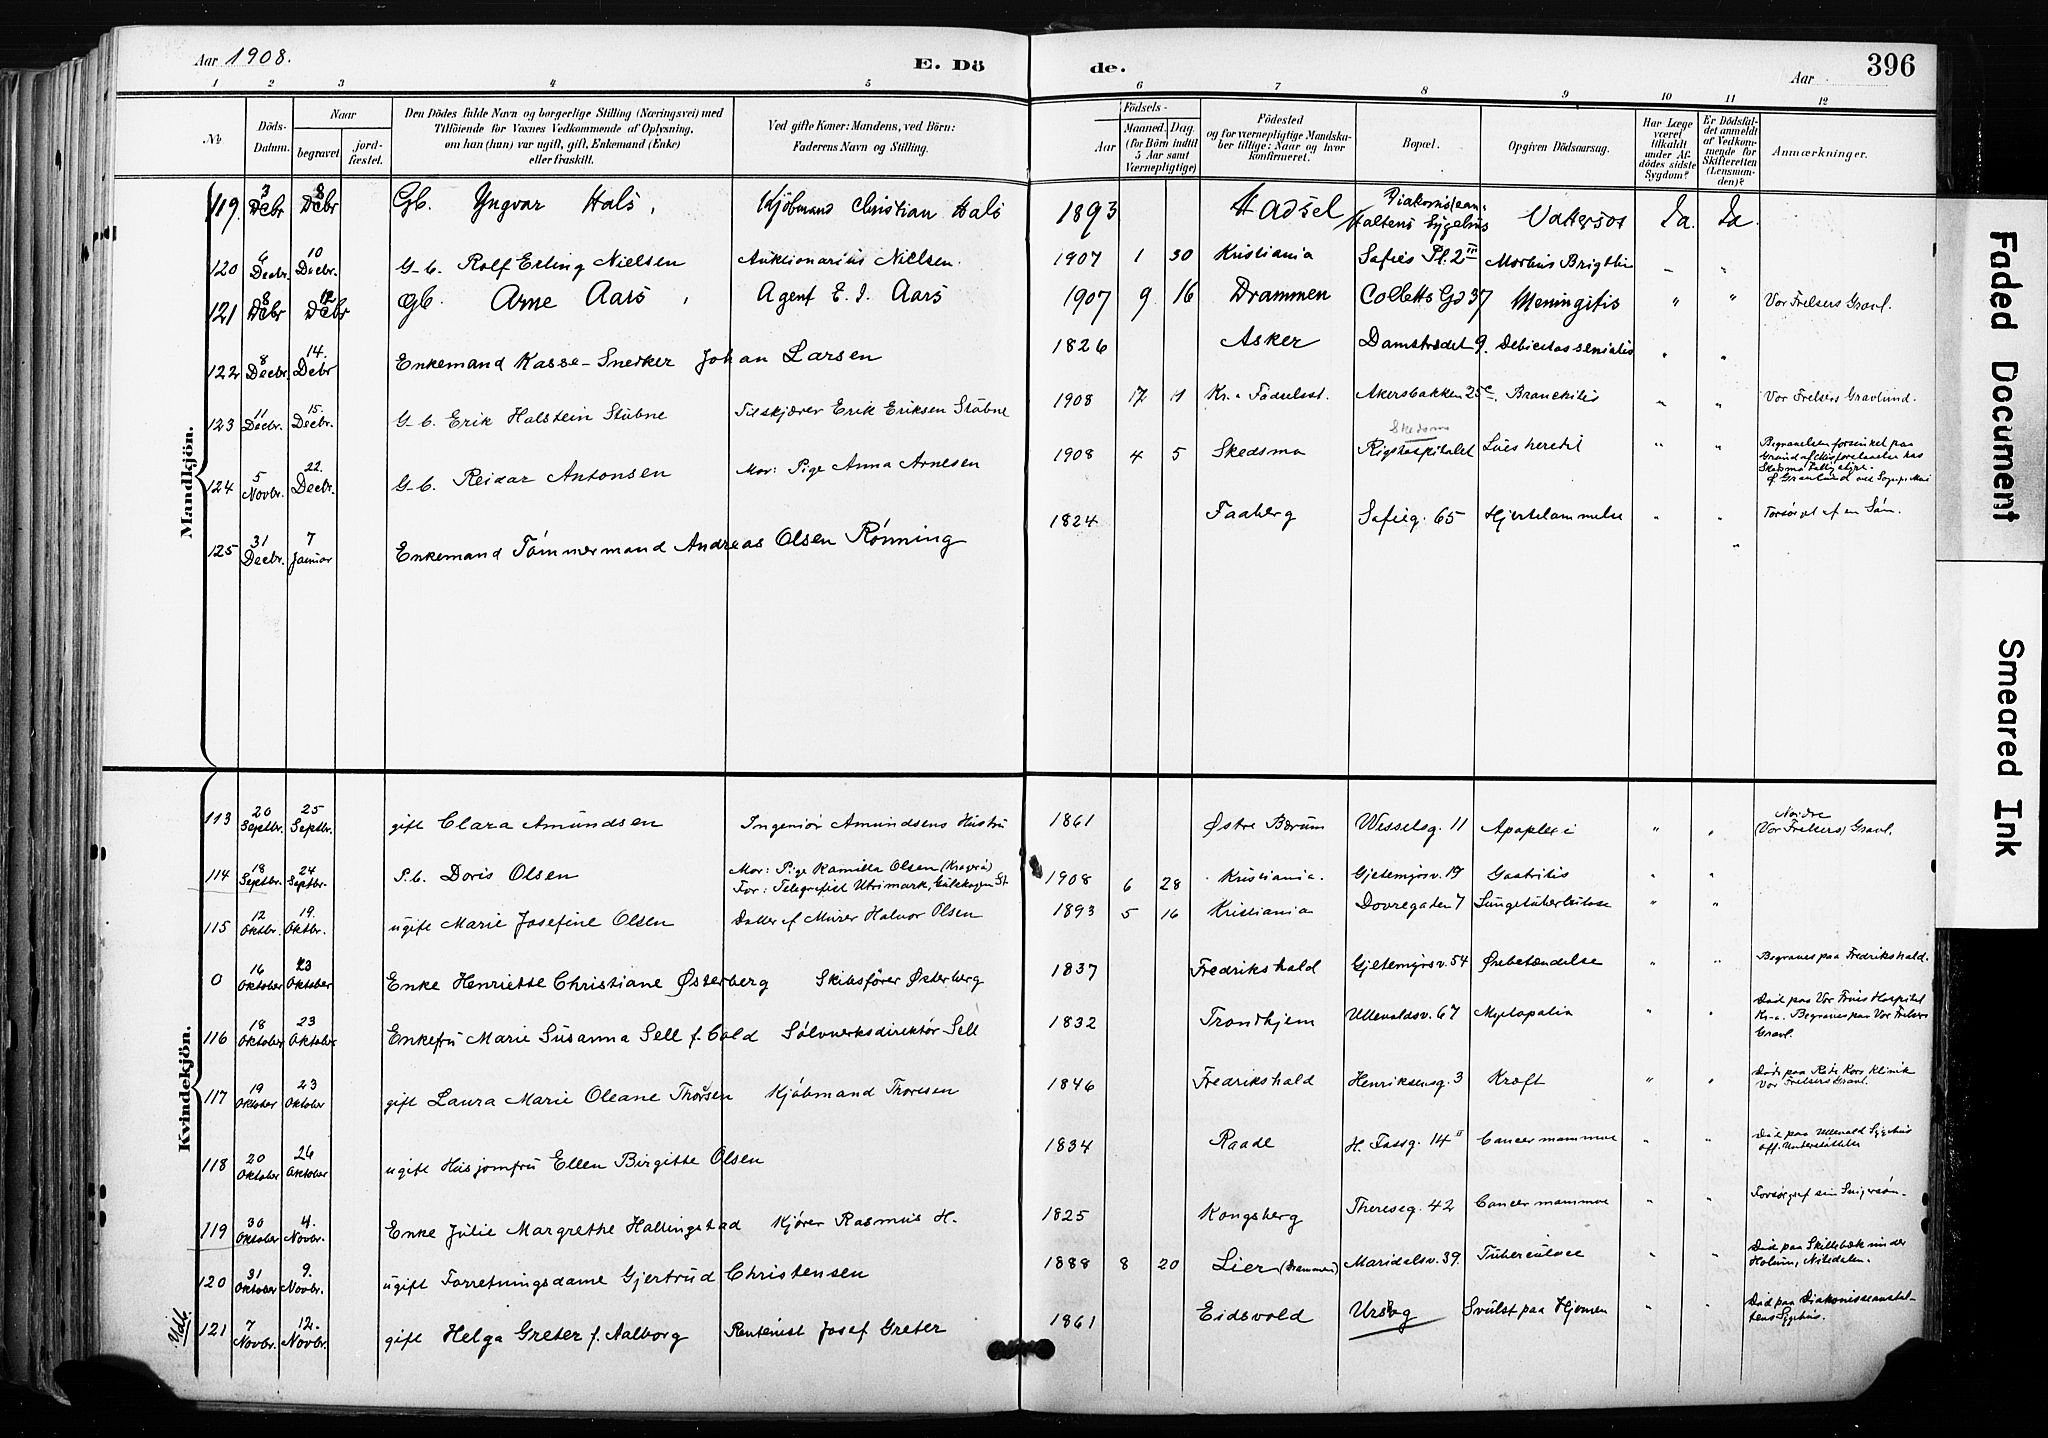 Aar 1908.
E. Dö
de.
Aar
396
1 2 3 4 5 6 7 8 9 10 11 12
№
Döds-
Datum.
Naar
begravet.
jord-
fæstet.
Den Dödes fulde Navn og borgerlige Stilling (Næringsvei) med
Tilföiende for Voxnes Vedkommende af Oplysning,
om han (hun) var ugift, gift, Enkemand (Enke)
eller fraskilt.
Ved gifte Koner: Mandens, ved Börn:
Faderens Navn og Stilling.
Födsels-
Aar
Maaned.
Dag.
(for Börn indtil
5 Aar samt
Værnepligtige)
Födested
og for værnepligtige Mandska-
ber tillige: Naar og hvor
konfirmeret.
Bopæl.
Opgiven Dödsaarsag.
Har Læge
været
tilkaldt
under Af-
dödes sidste
Sygdom?
Er Dödsfal-
det anmeldt
af Vedkom-
mende for
Skifteretten
(Lensman-
den)?
Anmærkninger.
Mandkjön.
119. 3 Debr 8 Debr Gb. Yngvar Hals, Kjöbmand Christian Hals 1893 Hadsel Diakonissean-
staltens Sygehus Ja. Ja.
120 6 Decbr. 10 Decbr. G-b. Rolf Erling Nielsen Auktionarius Nielsen. 1907 1 30 Kristiania Sofies Pl. 2 III Morbus Brigthii – "
121 8 Debr 12 Debr Gb. Arne Aars, Agent E. J. Aars 1907 9 16 Drammen Colletts Gd 37 Meningitis " " Vor Frelsers Gravl.
122 8 Decbr. 14. Debr Enkemand Kasse-Snedker Johan Larsen 1826 Asker Damstrædet 9. " "
123 11 Decbr. 15. Decbr. G-b. Erik Halstein Stubne Erik Eriksen Stubne 1908 11 Kr.a Födselsst. Akersbakken 25c Bronchitis " " Vor Frelsers Gravlund.
124 5 Novbr. 22. Decbr. G-b. Reidar Antonsen Mor: Pige Anna Arnesen 1908 4 5 Skedsmo Skedsmo
Rigshospitalet Lues heredit " " Begravelsen forsinket paa
Grund af
125 31 Decbr. 7 Januar Enkemand Tömmermand Andreas Olsen Rönning 1824 Faaberg Sofieg. 65 Hjertelammelse " " Forsörget af en Sön.
Kvindekjön.
113 20 Septbr. 25 Septbr. gift Clara Amundsen Ingeniör Amundsens Hustru 1861 Østre Bærum Wesselsg. 11 Apoplexi " " Nordre
(Vor Frelsers) Gravl.
114 18 Septbr. 24 Septbr. P.b. Doris Olsen Mor: Pige Kamilla Olsen
Far: Telegrafist Utnmark, 1908 6 28 Kristiania. Gjetemyrsv. 19 Gastritis " "
115 12 Oktbr. 19. Oktbr. ugift Marie Josefine Olsen Datter af Murer Halvor Olsen 1893 5 16 Kristiania Dovregaden 7 Lungetuberkulose " "
0 16 Oktober 23 Oktober Enke Henriette Christiane Østerberg Skibsförer Østerberg 1837 Fredrikshald Gjetemyrsv. 54 Ørebetændelse " " Begraves paa Fredrikshald.
116 18 Oktober 23 Oktober Enkefru Marie Susanna Sell f. Cold Sölvverksdirektör Sell 1832 Trondhjem Ullevoldsv. 67 " " Död paa Vor Frues Hospital
Kr.a. Begraves paa Vor Frelsers
Gravl.
117 19 Oktober 23 Oktober gift Laura Marie Oleane Thorsen Kjöbmand Thoresen 1846 Fredrikshald Henriksensg. 3 Kræft " " Död paa Röde Kors Klinik
Vor Frelsers Gravl.
118 20 Oktober 26 Oktober ugift Husjomfru Ellen Birgitte Olsen 1834 Raade H. Fossg. 14 II Cancer mammae " " Död paa Ullevold Sygehus
Off. Understöttelse
119 30 Oktober 4. Novbr. Enke Julie Margrethe Hallingstad Kjörer Rasmus H. 1825 Kongsberg Thereseg. 42 Cancer mammae " " Forsörget af sin Svigersön.
120 31 Oktober 9. Novbr. ugift Forretningsdame Gjertrud Christensen 1888 8 20 Lier (Drammen) Maridalsv. 39. Tuberculose " " Död paa Skillebæk under
Holum, Nitedalen.
121 7 Novbr. 12. Novbr. gift Helga Greter f. Aalborg Rentenist Josef Greter 1861 Eidsvold Urskog Svulst paa Hjernen " " Död paa Diakonisseanstal-
tens Sygehus.
Faded Document
Smeared Ink